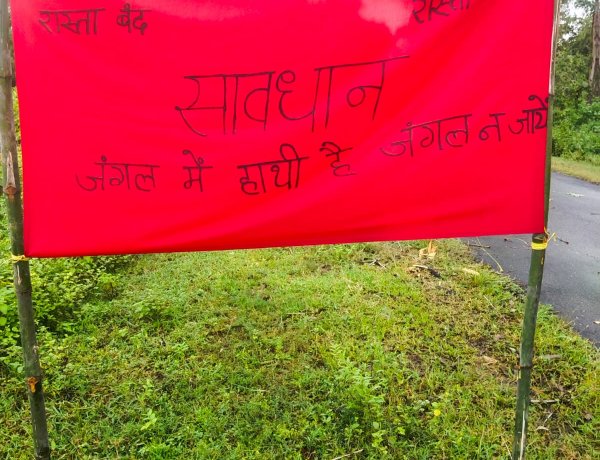 रास्ता बंद रास्ता
सावधान
जंगल में हाथी है जंगल न जायें